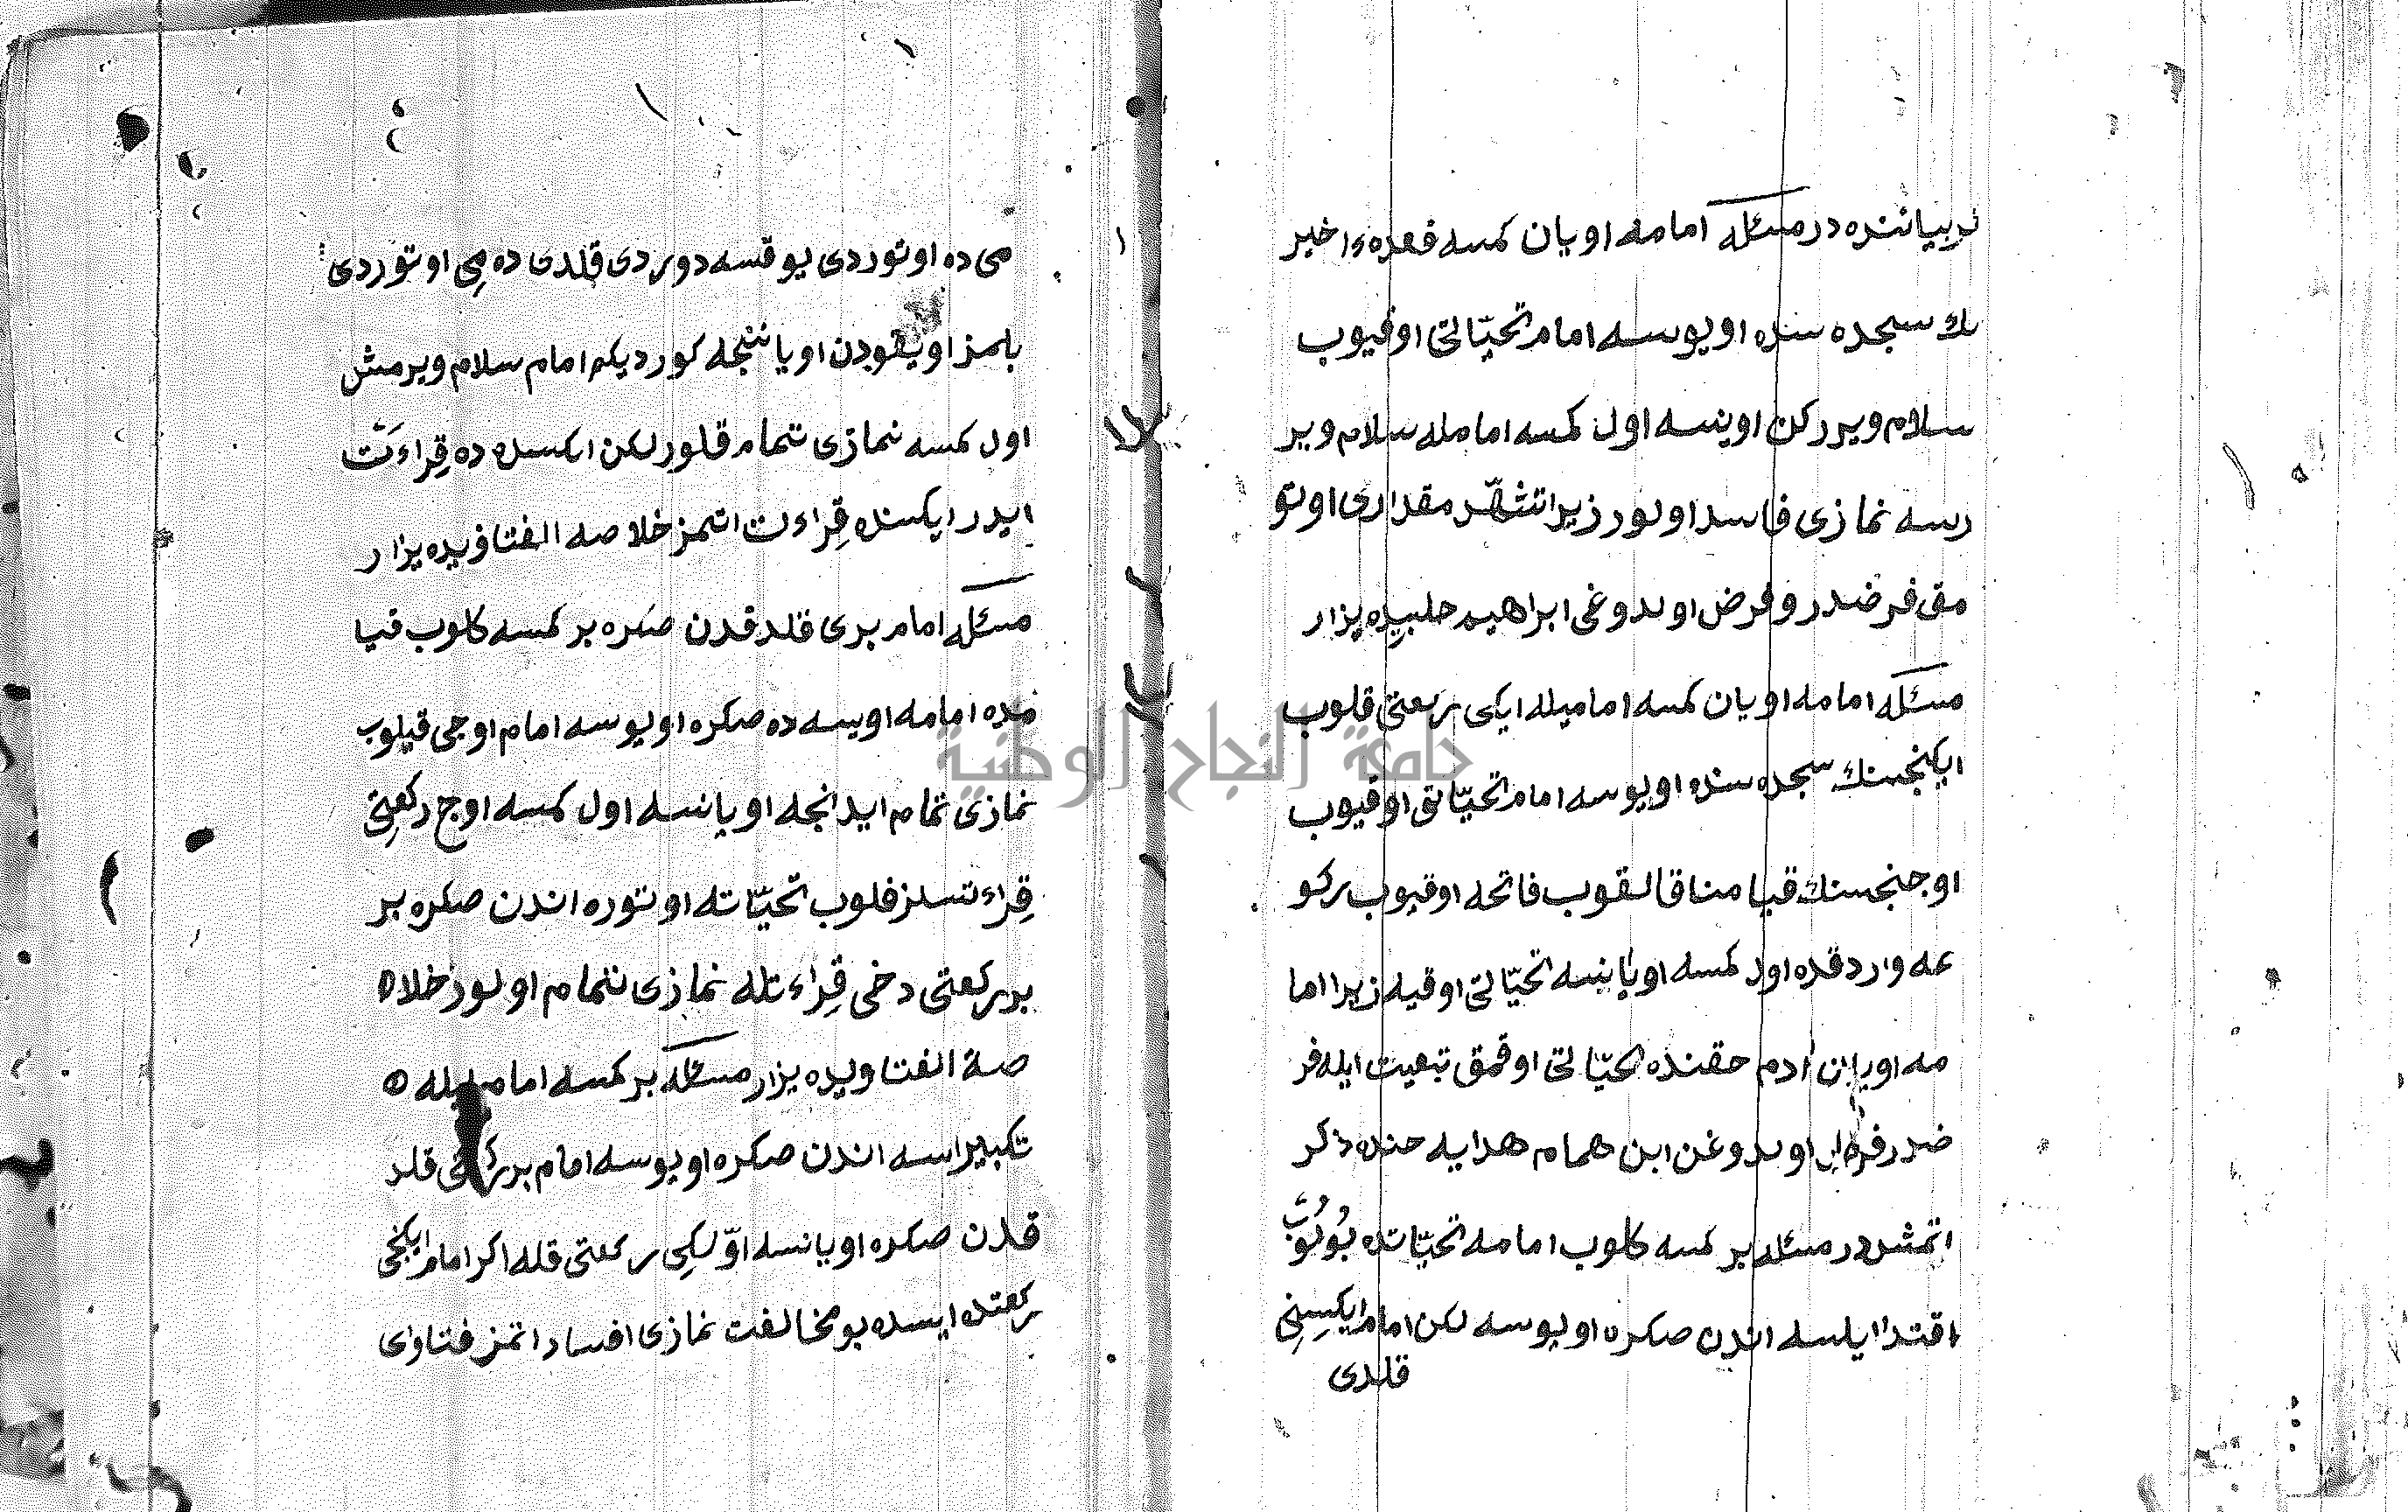 لر بياننده در مسئله امامه اويان كمسه قعدهء اخير
نك سجده سنده اويوسه امام تحيّاتى اوقيوب
سلام ويرركن اوينسه اول كمسه امامله سلام وير
رسه نمازى فاسد اولور زيرا تشهّد مقدارى اوتو
مق فرضدر و فرض اولدوغى ابراهيم حلبيده يزار
مسئله امامه اويان كمسه اماميله ايكى ركعتى قلوب
ايكنجسنك سجده سنده اويوسه امام تحيّاتى اوقيوب
اوجنجسنك قيامنا قالقوب فاتحه اوقيوب ركو
عه واردقده اول كمسه اويانسه تحيّاتى اوقيه زيرا اما
مه اويان ادم حقنده تحيّاتى اوقمق تبعيت ايله فر
ضدر فرض اولدوغن ابن همام هدايه حنده ذكر
اتمشدر مسئله بر كمسه كلوب امامه تحيّاتده بولوب
اقتدا ايلسه اندن صكره اويوسه لكن امام ايكسينى
قلدى
مى ده اوتوردى يوقسه دوردى قلدى ده مى اوتوردى
بلمز اويقودن اويانينجه كورديكم امام سلام ويرمش
اول كمسه نمازى تمام قلور لكن ايكسنده ده قراءت
ايدر ايكسنده قراءت اتمز خلاصه الفتاويده يزار
مسئله امام برى قلدقدن صكره بر كمسه كلوب قيا
مده امامه اويسه ده صكره اويوسه امام اوجى قيلوب
نمازى تمام ايدانجه اويانسه اول كمسه اوج ركعتى
قراءتسز قلوب تحيّاته اوتوره اندن صكره بر
بر ركعتى دخى قراءتله نمازى تمام اولور خلا
صة الفتاويده يزار مسئله بر كمسه اماميله
تكبيراسه اندن صكره اويوسه امام بر ركعتى قلد
قدن صكره اويانسه اوّلكى ركعتى قله اكر امام ايكنجى
ركعتده ايسده بو مخالفت نمازى افساد اتمز فتاواى
جامعة النجاح الوطنية